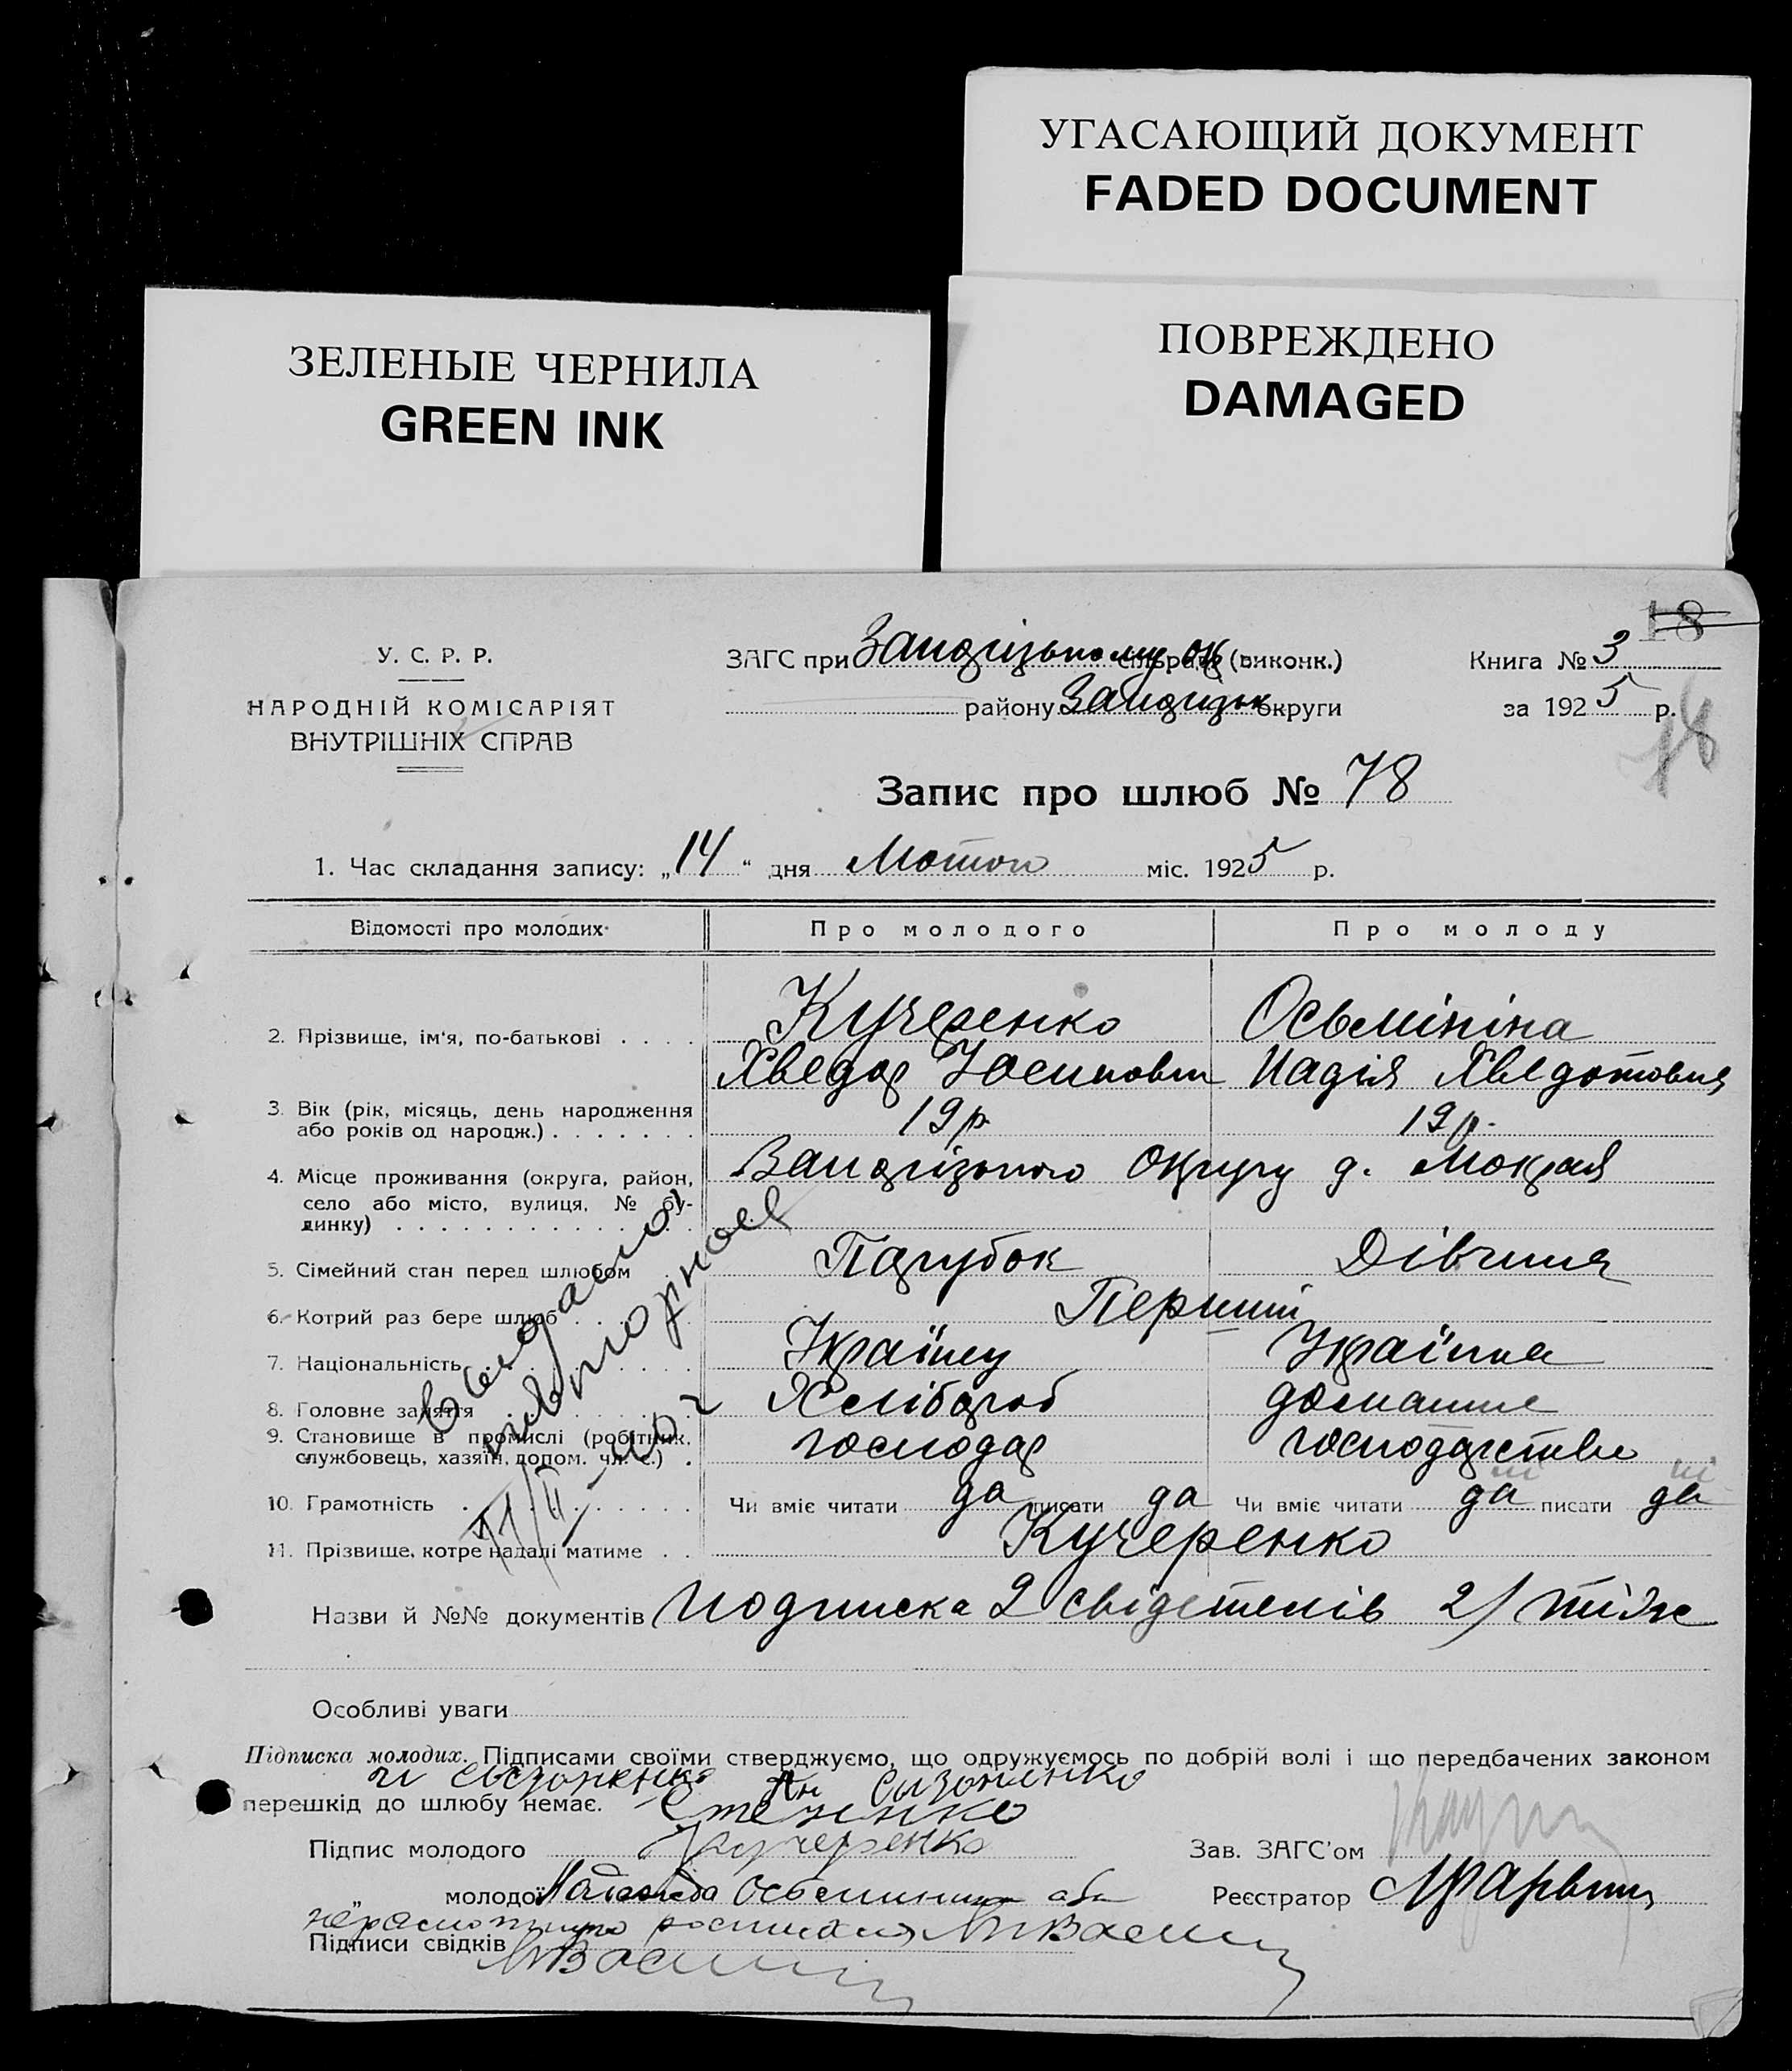 УГАСАЮЩИЙ ДОКУМЕНТ
FADED DOCUMENT
ЗЕЛЕНЫЕ ЧЕРНИЛА
GREEN INK
ПОВРЕЖДЕНО
DAMAGED
18
У. С. Р. Р.
НАРОДНІЙ КОМІСАРІЯТ
ВНУТРІШНІХ СПРАВ
ЗАГС при Запорізькому ок сільраде (виконк.)
району Запоризьк округи
Книга № 3
за 1925 р.
18
Запис про шлюб № 78
1. Час складання запису: „14“ дня Лютого міс. 1925 р.
Відомості про молодих
Про молодого
Про молоду
2. Прізвище, ім'я, по-батькові . . . .
Кучеренко
Осьмініна
Хведор Йосипович
Надія Хведотовна
3. Вік (рік, місяць, день народження
або років од народж.) . . . . . . .
19 р.
19 р.
4. Місце проживання (округа, район,
село або місто, вулиця, № бу-
динку) . . . . . . . . . . . . .
Запорізького Округу д. Мокрая
5. Сімейний стан перед шлюбом
Парубок
Дівчина
6. Котрий раз бере шлюб . . . . .
Перший
7. Національність . . . . . . . .
Українець
Українка
8. Головне заняття . . . . . . .
Хлібороб
домашнє
9. Становище в промислі (робітник,
службовець, хазяїн, допом. чл. с.) .
господар
господарстве
10. Грамотність . . . . . . . . .
Чи вміє читати да писати да
Чи вміє читати да писати да
ні ні
11. Прізвище, котре надалі матиме . .
Кучеренко
Видано
11/II
Назви й №№ документів Подписка 2 свідетелів 2/ тіж
Особливі уваги
Підписка молодих. Підписами своїми стверджуємо, що одружуємось по добрій волі і що передбачених законом
перешкід до шлюбу немає.
Сизоненко
Підпис молодого Кучеренко
Зав. ЗАГС'ом
„ молодої Надежда Осьминина
Реєстратор
Підписи свідків